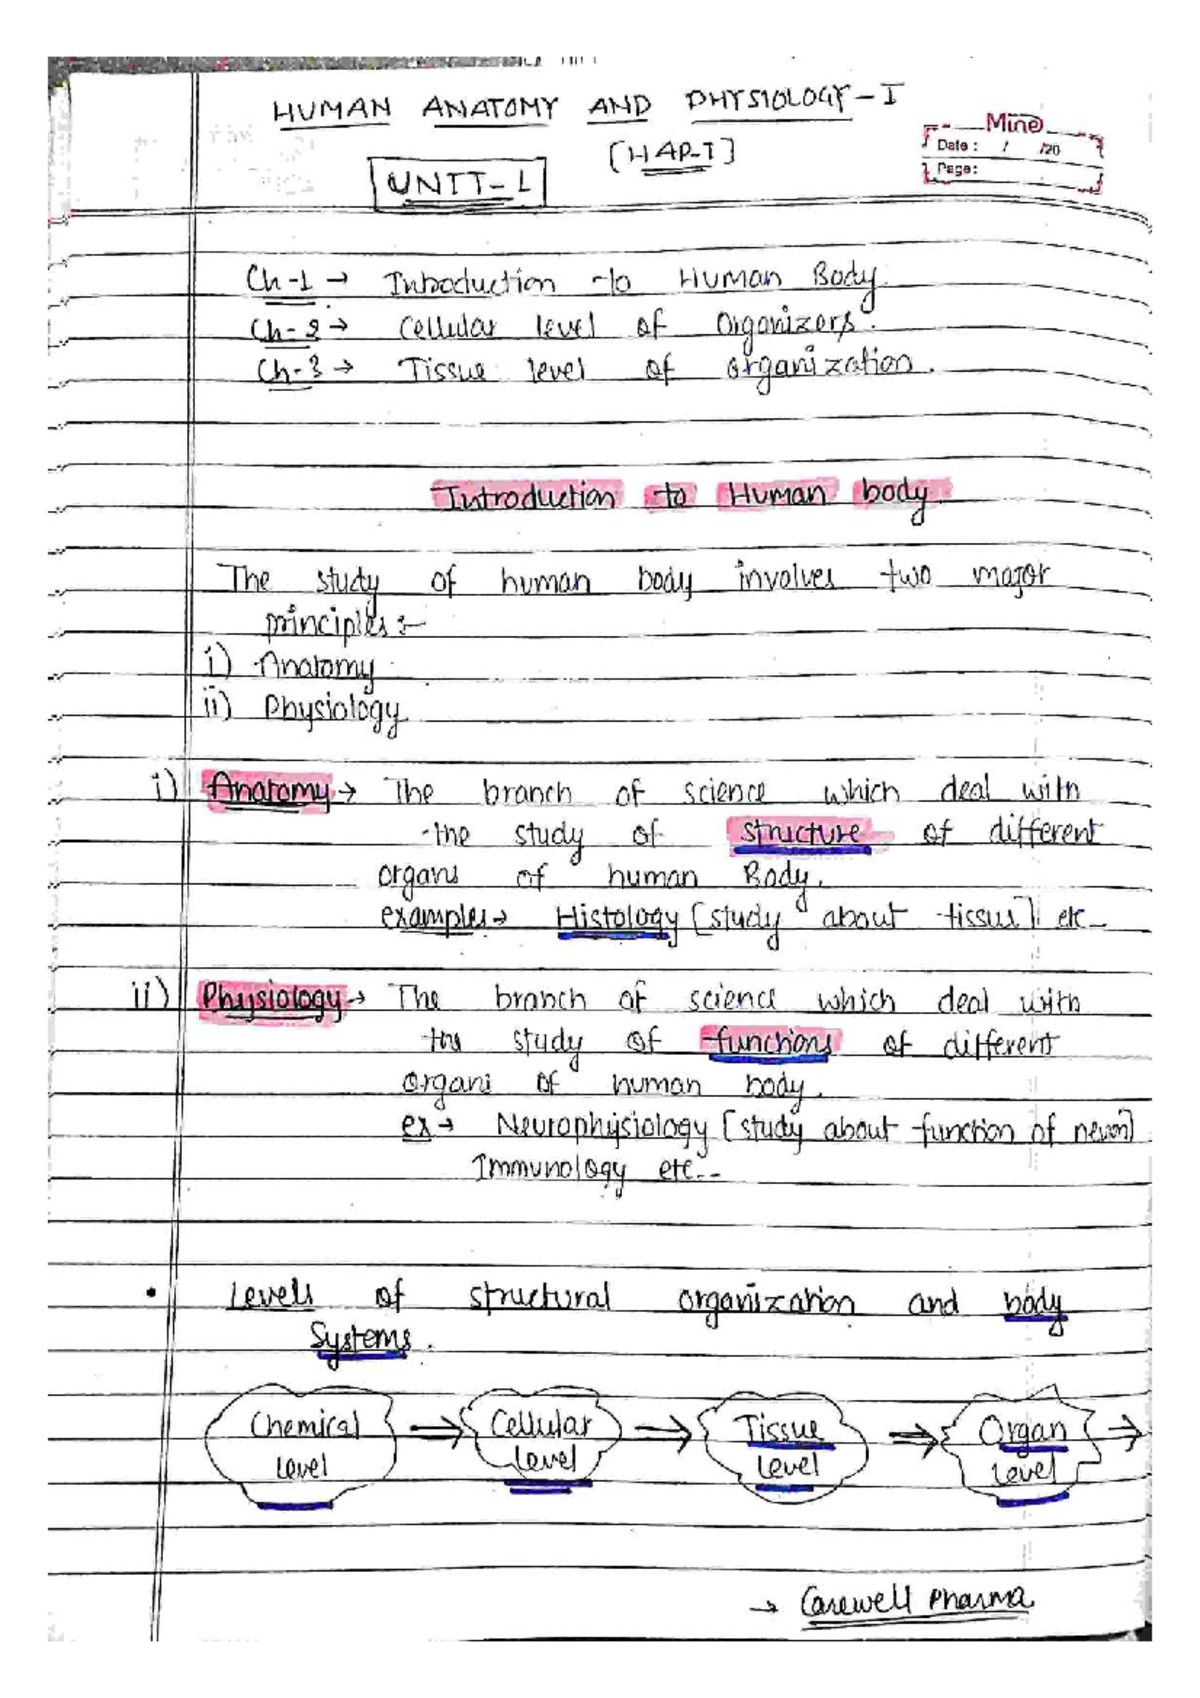 HUMAN ANATOMY AND PHYSIOLOGY-I
[HAP-I]
Mine
Date : / /20
Page:
UNIT-1
Ch-1 → Introduction to Human Body
Ch-2 → Cellular level of Organizers.
Ch-3 → Tissue level of organization.
Introduction to Human body
The study of human body involves two major
principles :-
i) Anatomy
ii) Physiology
i) Anatomy → The branch of science which deal with
the study of structure of different
organs of human Body.
examples → Histology [study about tissue] etc-
ii) Physiology → The branch of science which deal with
the study of functions of different
organs of human body.
ex → Neurophysiology [study about function of neuron]
Immunology etc--
• Levels of structural organization and body
Systems.
Chemical ⇒ Cellular ⇒ Tissue ⇒ Organ ⇒
level level level level
→ Carewell Pharma